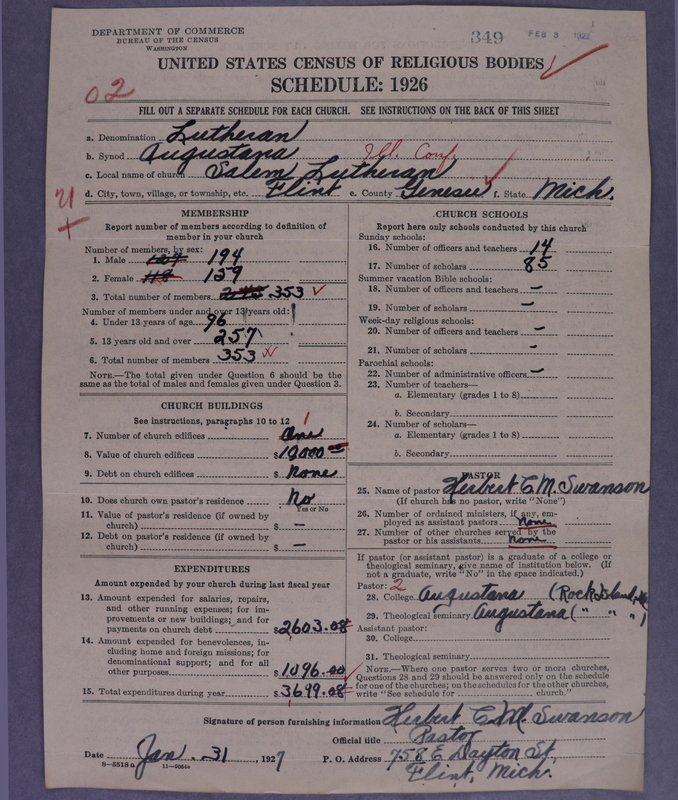 DEPARTMENT OF COMMERCE
BUREAU OF THE CENSUS
WASHINGTON
349
FEB 3 1927
UNITED STATES CENSUS OF RELIGIOUS BODIES
SCHEDULE: 1926
02
FILL OUT A SEPARATE SCHEDULE FOR EACH CHURCH. SEE INSTRUCTIONS ON THE BACK OF THIS SHEET
a. Denomination Lutheran
b. Synod Augustana Ill. Conf.
c. Local name of church Salem Lutheran
d. City, town, village, or township, etc. Flint e. County Genesee f. State Mich.
21
MEMBERSHIP
Report number of members according to definition of
member in your church
Number of members, by sex:
1. Male 194
2. Female 159
3. Total number of members 353
Number of members under and over 13 years old:
4. Under 13 years of age 96
5. 13 years old and over 257
6. Total number of members 353
NOTE.—The total given under Question 6 should be the
same as the total of males and females given under Question 3.
CHURCH BUILDINGS
See instructions, paragraphs 10 to 12
7. Number of church edifices One
8. Value of church edifices $ 19000
9. Debt on church edifices $ None
10. Does church own pastor's residence No
Yes or No
11. Value of pastor's residence (if owned by
church) $ —
12. Debt on pastor's residence (if owned by
church) $ —
EXPENDITURES
Amount expended by your church during last fiscal year
13. Amount expended for salaries, repairs,
and other running expenses; for im-
provements or new buildings; and for
payments on church debt $ 2603.08
14. Amount expended for benevolences, in-
cluding home and foreign missions; for
denominational support; and for all
other purposes $ 1096.00
15. Total expenditures during year $ 3699.08
CHURCH SCHOOLS
Report here only schools conducted by this church
Sunday schools:
16. Number of officers and teachers 14
17. Number of scholars 85
Summer vacation Bible schools:
18. Number of officers and teachers —
19. Number of scholars —
Week-day religious schools:
20. Number of officers and teachers —
21. Number of scholars —
Parochial schools:
22. Number of administrative officers —
23. Number of teachers—
a. Elementary (grades 1 to 8)
b. Secondary
24. Number of scholars—
a. Elementary (grades 1 to 8)
b. Secondary
PASTOR
25. Name of pastor Herbert C. M. Swanson
(If church has no pastor, write "None")
26. Number of ordained ministers, if any, em-
ployed as assistant pastors None
27. Number of other churches served by the
pastor or his assistants None
If pastor (or assistant pastor) is a graduate of a college or
theological seminary, give name of institution below. (If
not a graduate, write "No" in the space indicated.)
Pastor: 2
28. College Augustana (Rock Island,
29. Theological seminary Augustana ( " " " )
Assistant pastor:
30. College
31. Theological seminary
NOTE.—Where one pastor serves two or more churches,
Questions 28 and 29 should be answered only on the schedule
for one of the churches; on the schedules for the other churches,
write "See schedule for church."
Signature of person furnishing information Herbert C. M. Swanson
Official title Pastor
Date Jan. 31, 1927 P. O. Address 758 E Dayton St,
8—5518a Flint, Mich.